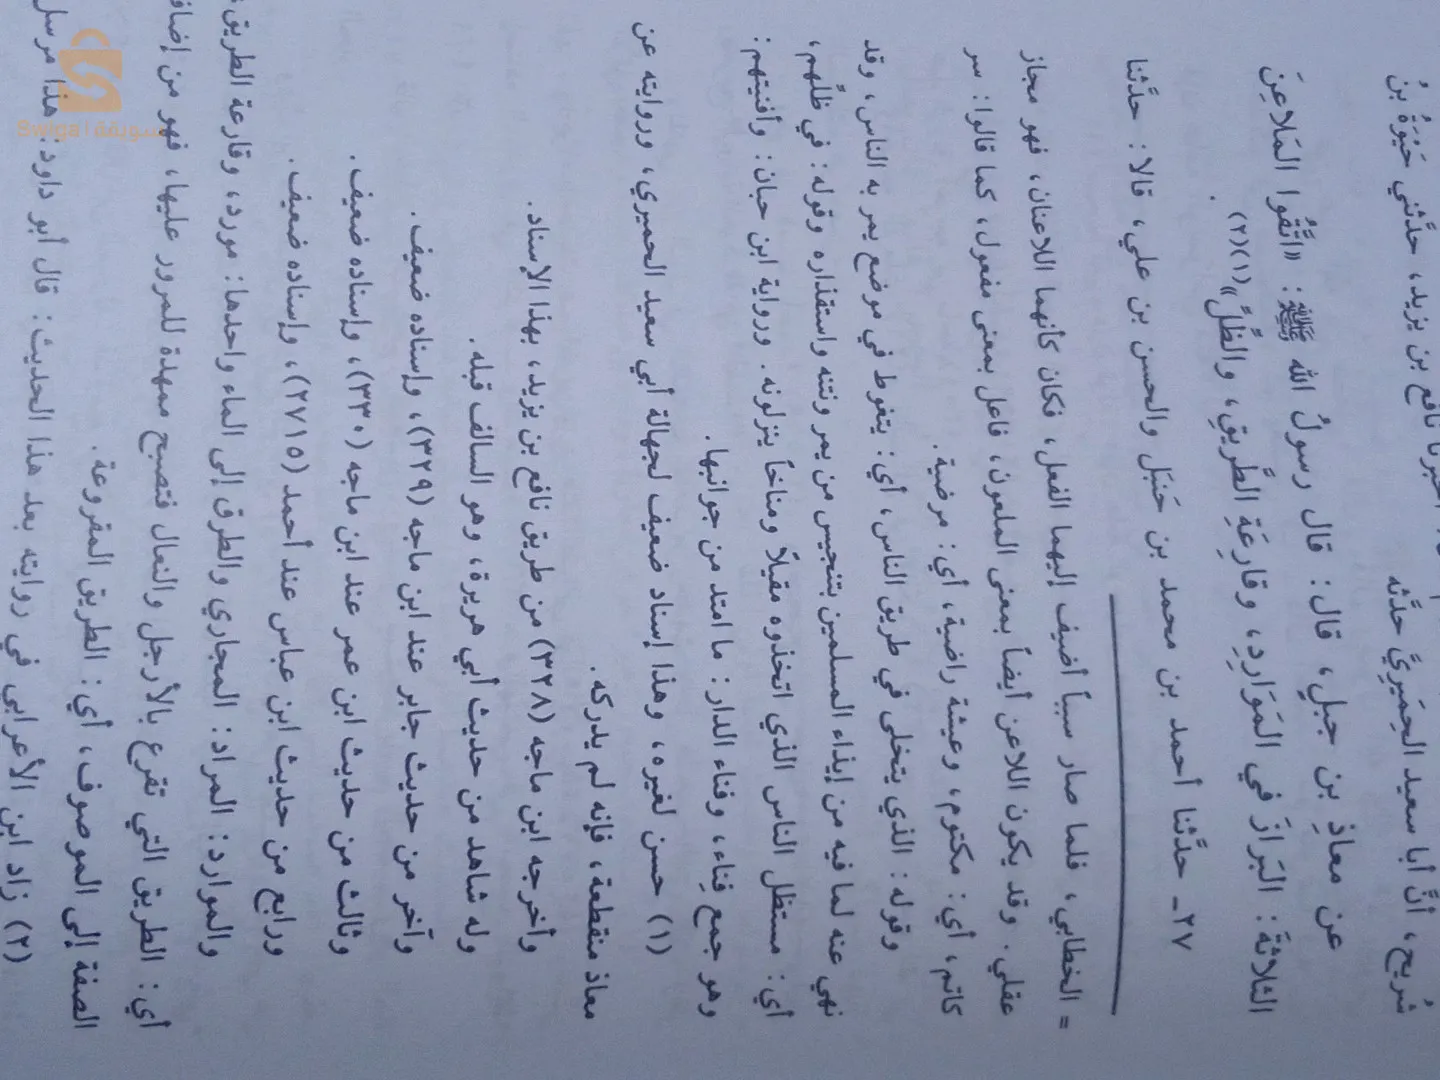 أخبرنا نافع بن يزيد، حدَّثني حَيْوَةُ بنُ
شُريح، أنَّ أبا سعيد الحِمَيريَّ حدَّثه
عن معاذِ بن جبلٍ، قال: قال رسولُ الله ﷺ: «اتَّقُوا المَلاعِنَ
الثلاثةَ: البَرازَ في المَوَارِدِ، وقارِعَةِ الطَّريقِ، والظِّلِّ»(١)(٢).
٢٧ـ حدَّثنا أحمد بن محمد بن حَنبَل والحسن بن علي، قالا: حدَّثنا
= الخطابي، فلما صار سبباً أضيف إليهما الفعل، فكان كأنهما اللاعنان، فهو مجاز
عقلي. وقد يكون اللاعن أيضاً بمعنى الملعون، فاعل بمعنى مفعول، كما قالوا: سر
كاتم، أي: مكتوم، وعيشة راضية، أي: مرضية.
وقوله: الذي يتخلى في طريق الناس، أي: يتغوط في موضع يمر به الناس، وقد
نهي عنه لما فيه من إيذاء المسلمين بتنجيس من يمر ونتنه واستقذاره وقوله: في ظلِّهم،
أي: مستظل الناس الذي اتخذوه مقيلاً ومناخاً ينزلونه. ورواية ابن حبان: وأفنيتهم:
وهو جمع فِناء، وفناء الدار: ما امتد من جوانبها.
(١) حسن لغيره، وهذا إسناد ضعيف لجهالة أبي سعيد الحميري، وروايته عن
معاذ منقطعة، فإنه لم يدركه.
وأخرجه ابن ماجه (٣٢٨) من طريق نافع بن يزيد، بهذا الإسناد.
وله شاهد من حديث أبي هريرة، وهو السالف قبله.
وآخر من حديث جابر عند ابن ماجه (٣٢٩)، وإسناده ضعيف.
وثالث من حديث ابن عمر عند ابن ماجه (٣٣٠)، وإسناده ضعيف.
ورابع من حديث ابن عباس عند أحمد (٢٧١٥)، وإسناده ضعيف.
والموارد: المراد: المجاري والطرق إلى الماء واحدها: مورد، وقارعة الطريق:
أي: الطريق التي تقرع بالأرجل والنعال فتصبح ممهدة للمرور عليها، فهو من إضافة
الصفة إلى الموصوف، أي: الطريق المقروعة.
(٢) زاد ابن الأعرابي في روايته بعد هذا الحديث: قال أبو داود: هذا مرسل
سويقة Swiqa